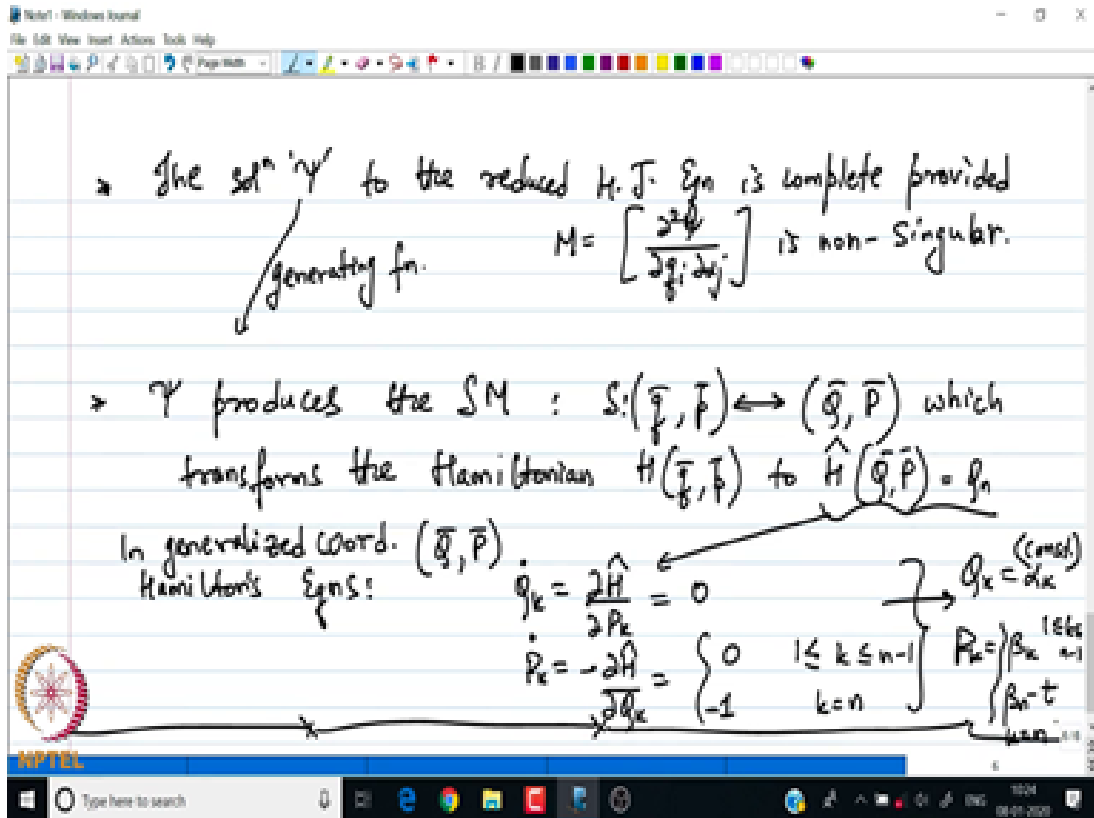 Note1 - Windows Journal
File Edit View Insert Actions Tools Help
Page Width
* The solⁿ 'ψ' to the reduced H.J. Eqn is complete provided
M = [∂²ψ / ∂q_i ∂α_j] is non-singular.
generating fn.
* ψ produces the SM : S:(q̄, p̄) ↔ (Q̄, P̄) which
transforms the Hamiltonian H(q̄, p̄) to Ĥ(Q̄, P̄) = Q_n
In generalized coord. (Q̄, P̄)
Hamilton's Eqns:
Q̇_k = ∂Ĥ/∂P_k = 0
Ṗ_k = -∂Ĥ/∂Q_k = { 0 1 ≤ k ≤ n-1
-1 k=n }
→ Q_k = α_k (const)
P_k = { β_k 1≤k≤n-1
β_n - t k=n
NPTEL
Type here to search
ENG
10:24
08-01-2020